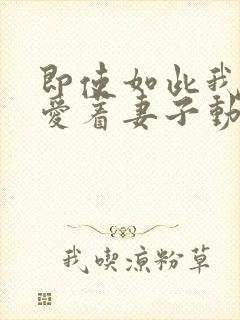 即使如此我
愛着妻子動
我喫涼粉草